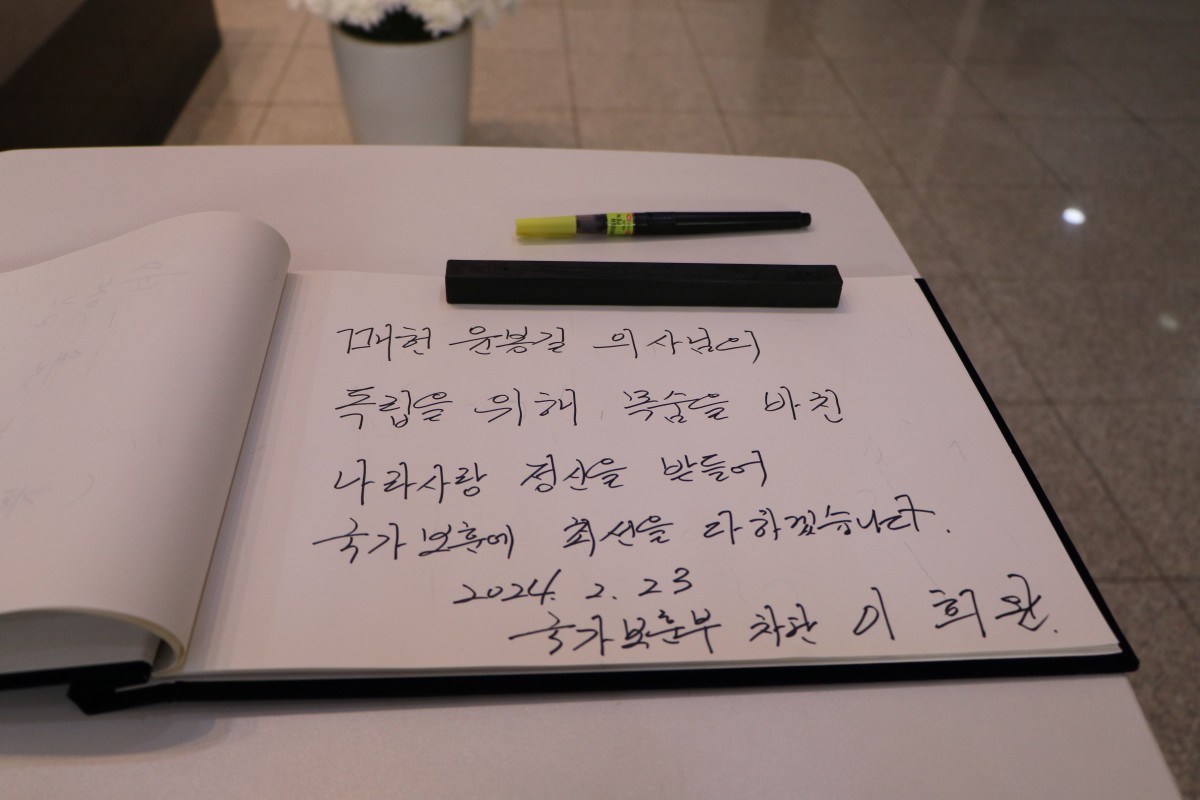 매헌 윤봉길 의사님의
독립을 위해 목숨을 바친
나라사랑 정신을 받들어
국가보훈에 최선을 다하겠습니다.
2024. 2. 23
국가보훈부 차관 이 희 완.